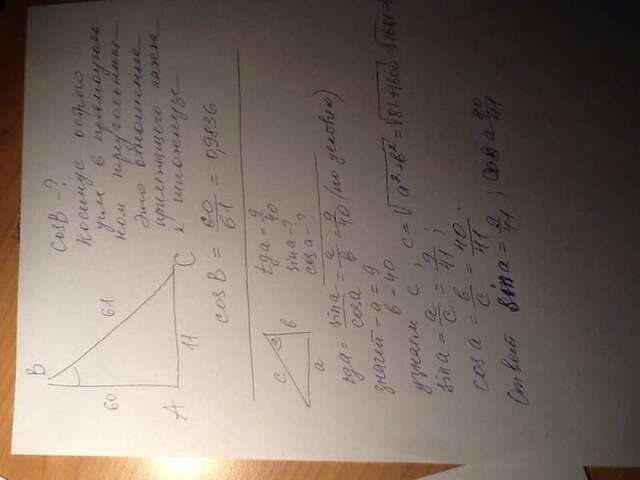 B
60
61
A
11
C
cosB - ?
Косинус острого
угла в прямоуголь
ном треугольнике -
это отношение
прилежащего катета
к гипотенузе
cosB = 60/61 = 0,9836
c
a
b
tga = 9/40
sina - ?
cosa - ?
tga = sina/cosa = a/b = 9/40 (по условию)
значит - a = 9
b = 40
узнаем c, c = √a²+b² = √81+1600 = √1681 =
sina = a/c = 9/41;
cosa = b/c = 40/41.
Ответ sina = 9/41; cosa 40/41